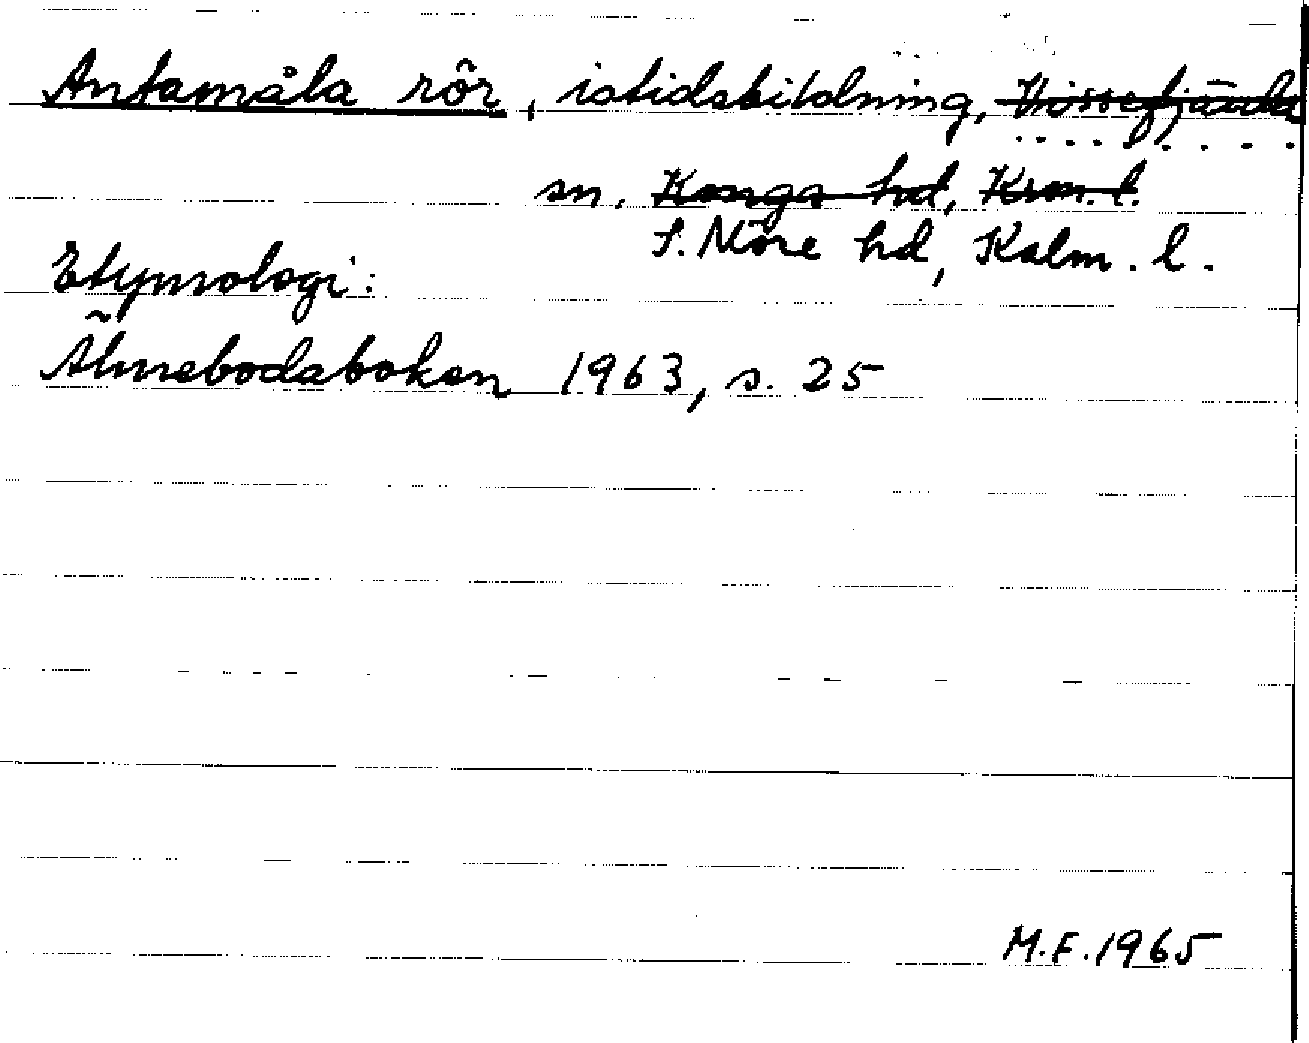 Antamåla rör, istidsbildning, Vissefjärda
sn. Konga hd, Kron. l.
S. Möre hd, Kalm. l.
Etymologi:
Älmebodaboken 1963, s. 25
M.F. 1965